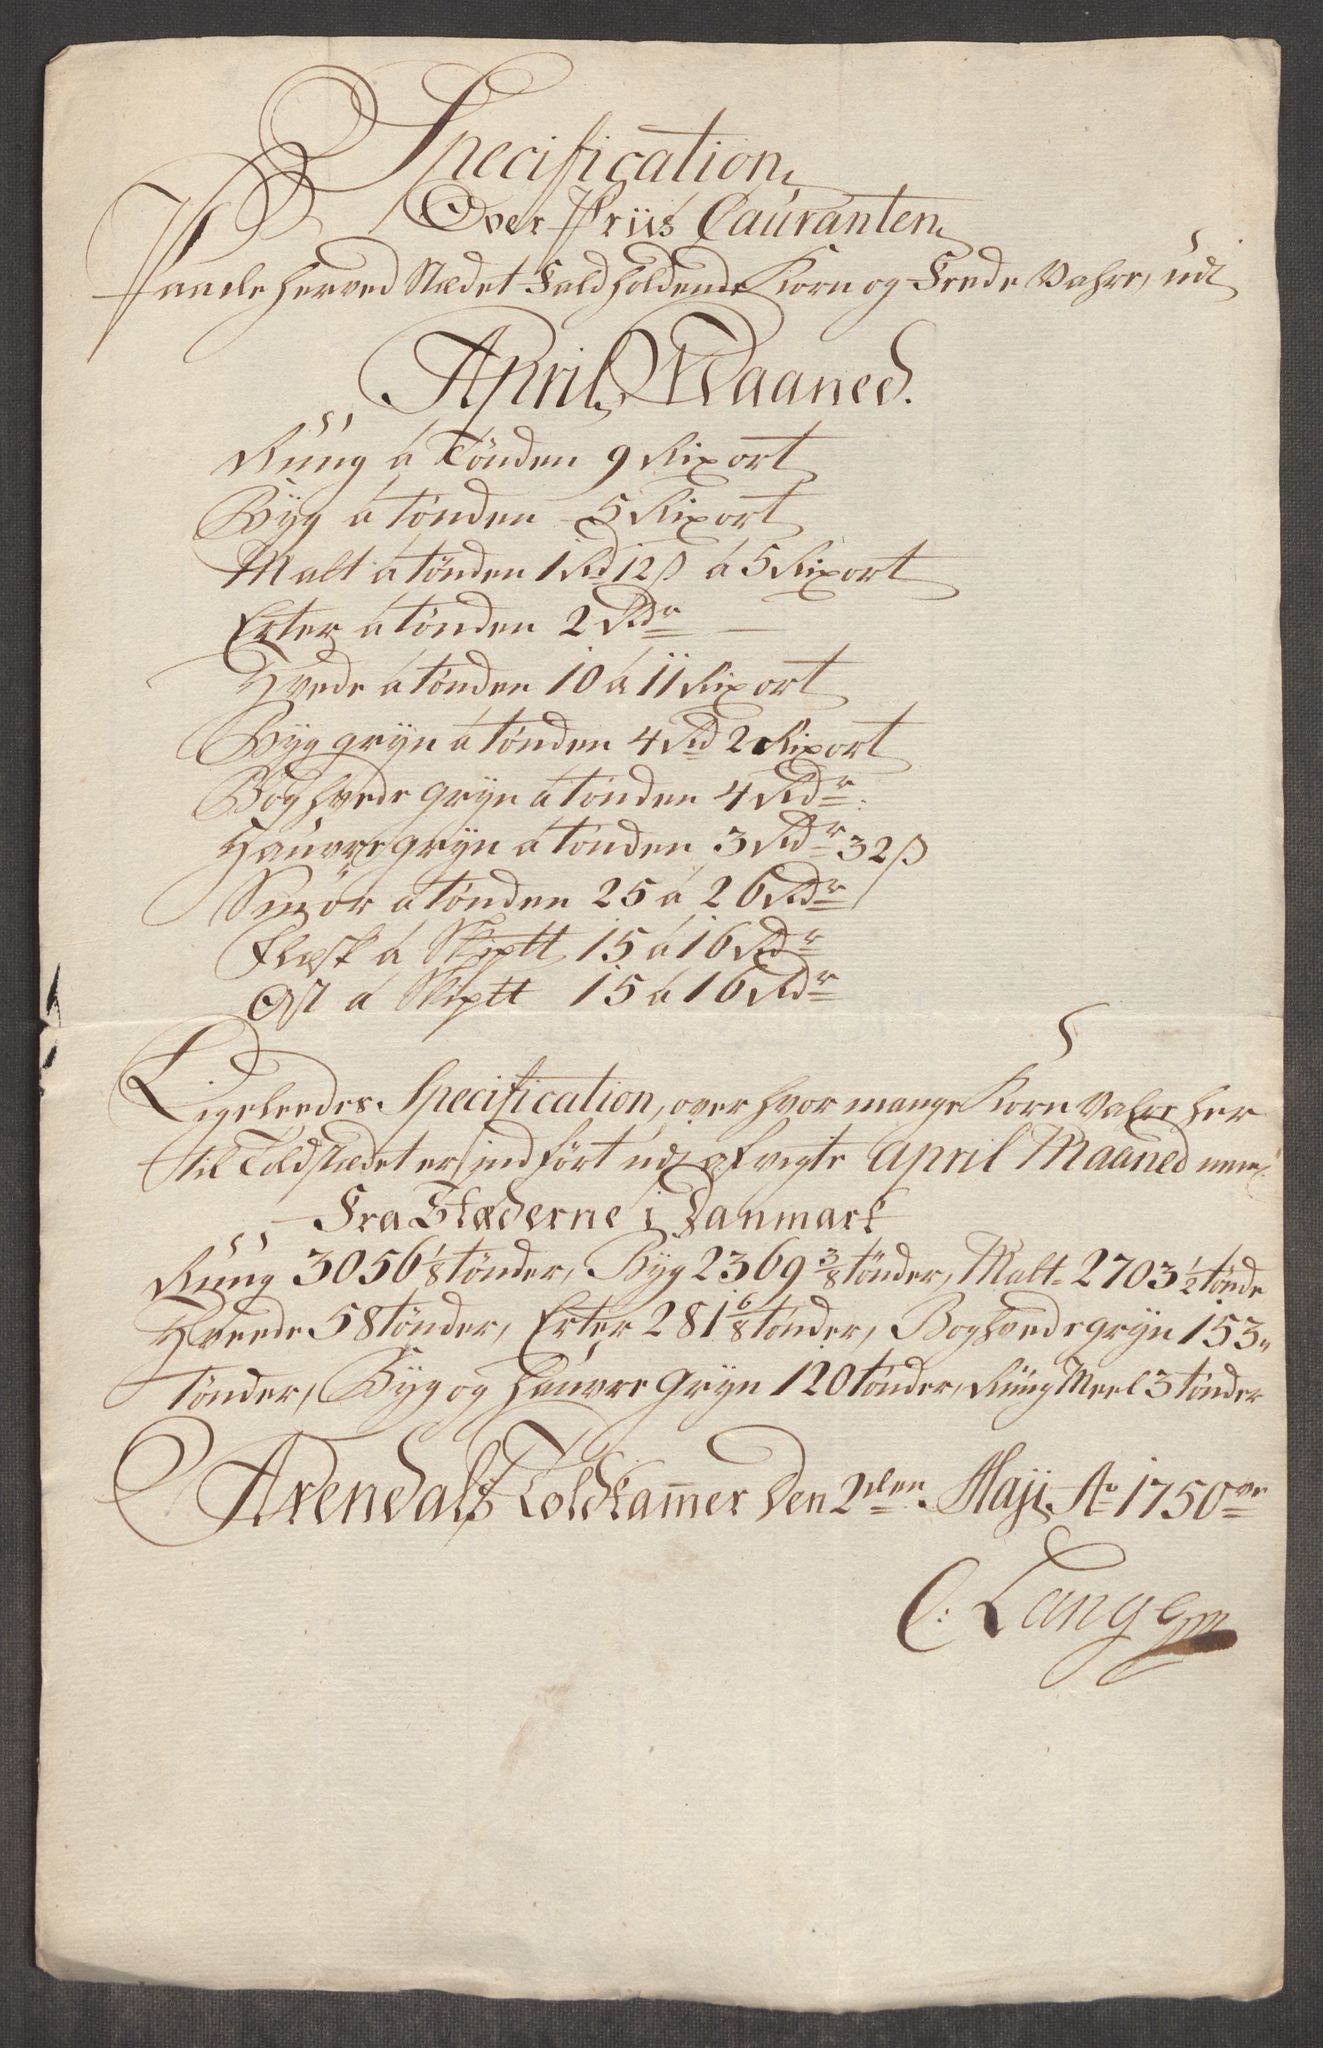 Specification,
Over Priis Couranten,
Paa de herved Stædet Faldholdende Korn og Fede Vahre, udi
April Maaned.
Rúúg á Tönden 9 Rixort
Byg á tönden 5 Rixort
Malt á tönden 1 Rd 12 ß á 5 Rixort
Erter á tönden 2 Rdr
Hvede á tönden 10 á 11 Rixort
Byg gryn á tönden 4 Rd 2 Rixort
Boghvede gryn á tönden 4 Rdr.
Haúvre gryn á tönden 3 Rdr 32 ß
Smör á tönden 25 á 26 Rdr
Flesk á Skiptt 15 á 16 Rdr
Ost á Skiptt 15 á 16 Rdr
Ligeleedes Specification, over hvor mange Korn Vahre her
til Toldstædet er indfört udj afvigte April Maaned neml:
Fra Stæderne i Danmark
Rúúg 3056 1/8 tönder, Byg 2369 3/8 tönder, Malt 2703 1/2 tönde
Hveede 58 tönder, Erter 281 6/8 tönder, Boghvede gryn 153
tönder, Byg og Haúvre Gryn 120 tönder, Rúúg Meel 3 tönder
Arendals Toldkammer den 2den Maji Ao 1750
C: Lange